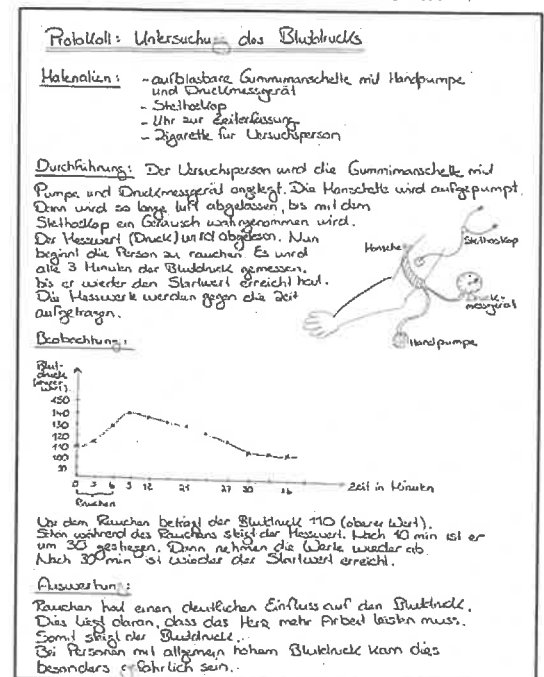 Protokoll: Untersuchung des Blutdrucks
Materialien: - aufblasbare Gummimanschette mit Handpumpe
und Druckmessgerät
- Stethoskop
- Uhr zur Zeiterfassung
- Zigarette für Versuchsperson
Durchführung: Der Versuchsperson wird die Gummimanschette mit
Pumpe und Druckmessgerät angelegt. Die Manschette wird aufgepumpt.
Dann wird so lange Luft abgelassen, bis mit dem
Stethoskop ein Geräusch wahrgenommen wird.
Der Messwert (Druck) wird abgelesen. Nun
beginnt die Person zu rauchen. Es wird
alle 3 Minuten der Blutdruck gemessen,
bis er wieder den Startwert erreicht hat.
Die Messwerte werden gegen die Zeit
aufgetragen.
Stethoskop
Druck-
messgerät
Handpumpe
Beobachtung:
Blut-
druck
(oberer
Wert)
150
140
130
120
110
100
90
0 3 6 9 12 21 27 30 36
Zeit in Minuten
Rauchen
Vor dem Rauchen beträgt der Blutdruck 110 (oberer Wert).
Schon während des Rauchens steigt der Messwert. Nach 10 min ist er
um 30 gestiegen. Dann nehmen die Werte wieder ab.
Nach 30 min ist wieder der Startwert erreicht.
Auswertung:
Rauchen hat einen deutlichen Einfluss auf den Blutdruck.
Dies liegt daran, dass das Herz mehr Arbeit leisten muss.
Somit steigt der Blutdruck.
Bei Personen mit allgemein hohem Blutdruck kann dies
besonders gefährlich sein.